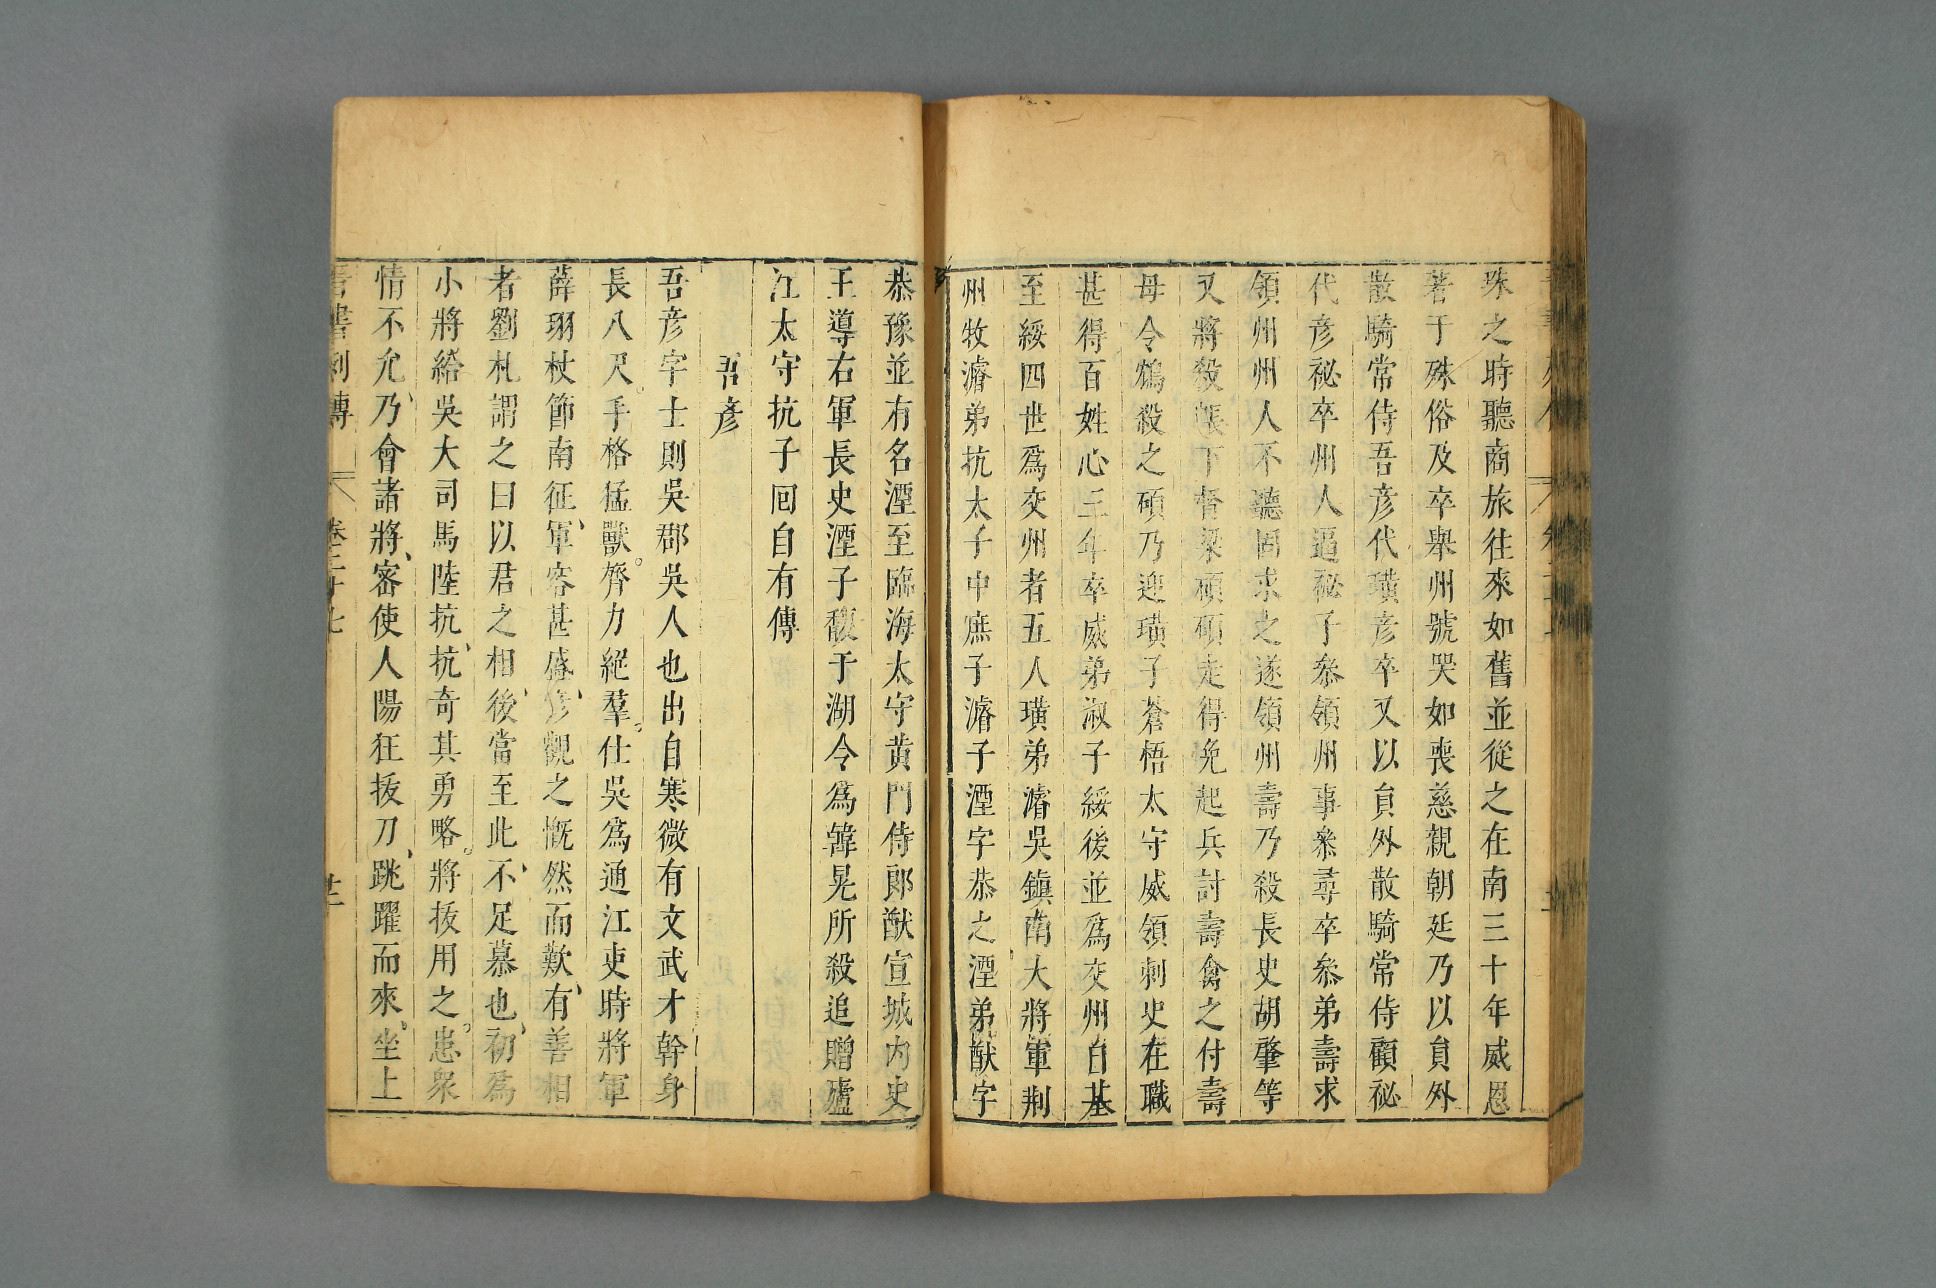 珠之時聽商旅往來如舊並從之在南三十年威恩
著于殊俗及卒舉州號哭如喪慈親朝廷乃以貟外
散騎常侍吾彦代璜彦卒又以貟外散騎常侍顧祕
代彦祕卒州人逼祕子叅領州事叅尋卒叅弟壽求
領州州人不聽固求之遂領州壽乃殺長史胡肇等
又將殺帳下督梁碩碩走得免起兵討壽禽之付壽
母令鴆殺之碩乃迎璜子蒼梧太守威領刺史在職
甚得百姓心三年卒威弟淑子綏後並爲交州自基
至綏四世爲交州者五人璜弟濬吳鎮南大將軍荆
州牧濬弟抗太子中庶子濬子湮字恭之湮弟猷字
恭豫並有名湮至臨海太守黄門侍郎猷宣城内史
王導右軍長史湮子馥于湖令爲韓晃所殺追贈廬
江太守抗子囘自有傳
吾彦
吾彦字士則吳郡吳人也出自寒微有文武才幹身
長八尺。手格猛獸。膂力絕羣。仕吳爲通江吏時將軍
薛珝杖節南征、軍容甚盛、彦觀之慨然而歎、有善相
者劉札謂之曰以君之相、後當至此、不足慕也、初爲
小將給吳大司馬陸抗、抗奇其勇略。將抜用之。患衆
情不允、乃會諸將、密使人陽狂抜刀、跳躍而來。坐上
晋書列傳 卷二十七 廿一